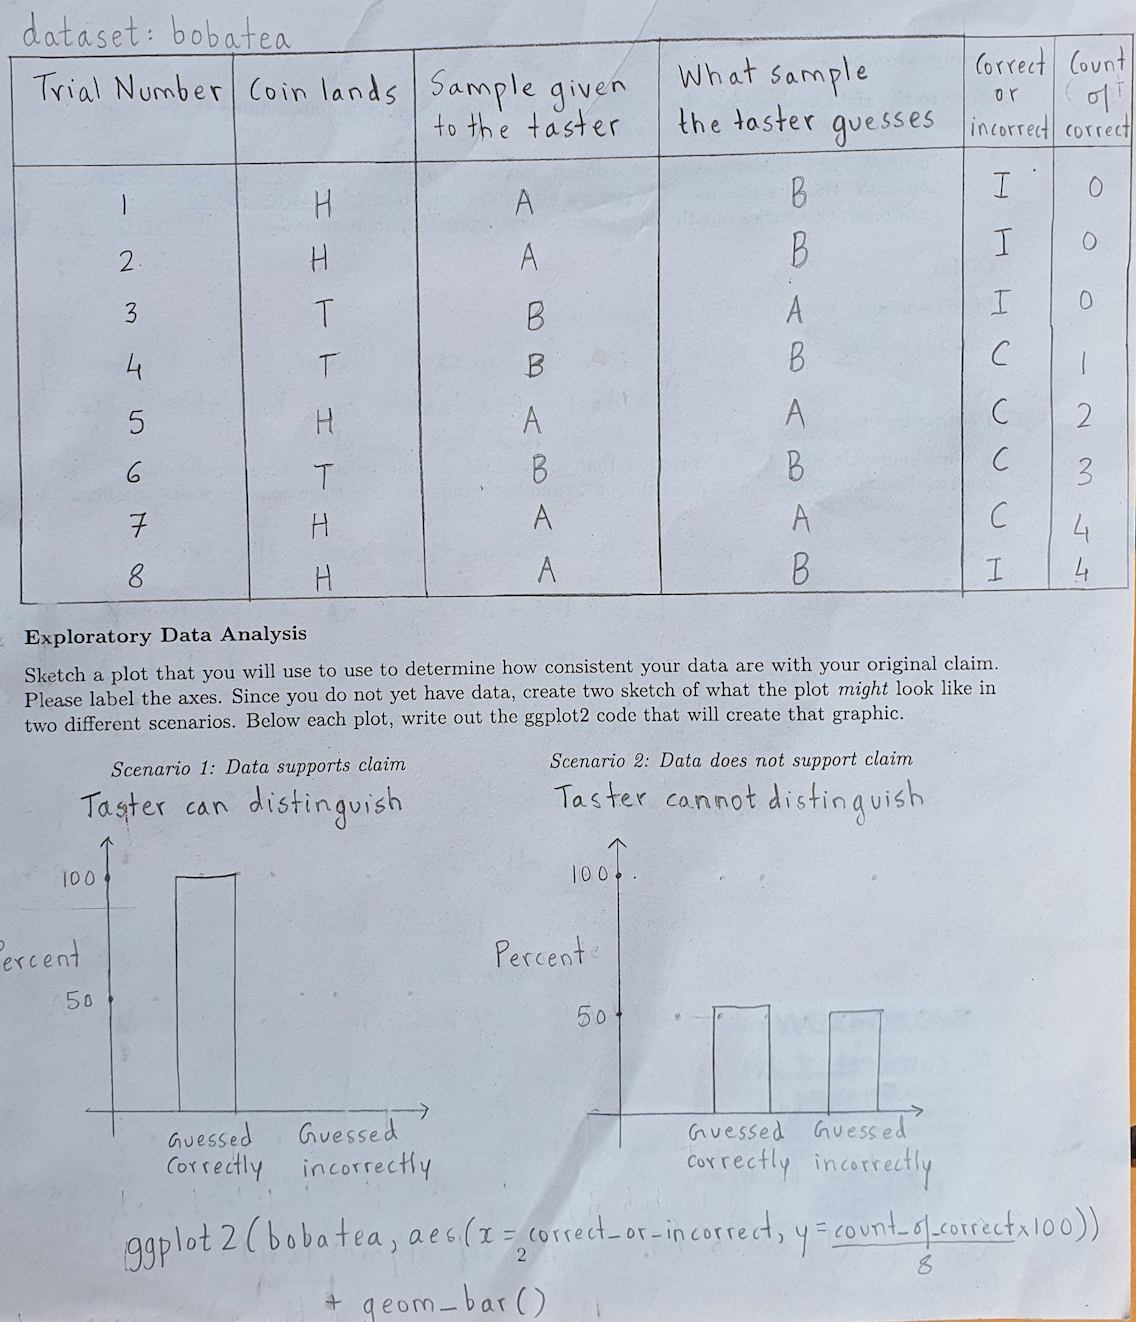 dataset: bobatea
Trial Number Coin lands Sample given to the taster What sample the taster guesses Correct or incorrect Count of correct
1 H A B I 0
2 H A B I 0
3 T B A I 0
4 T B B C 1
5 H A A C 2
6 T B B C 3
7 H A A C 4
8 H A B I 4
Exploratory Data Analysis
Sketch a plot that you will use to use to determine how consistent your data are with your original claim.
Please label the axes. Since you do not yet have data, create two sketch of what the plot might look like in
two different scenarios. Below each plot, write out the ggplot2 code that will create that graphic.
Scenario 1: Data supports claim
Taster can distinguish
100
Percent
50
Guessed correctly
Guessed incorrectly
Scenario 2: Data does not support claim
Taster cannot distinguish
100
Percent
50
Guessed correctly
Guessed incorrectly
ggplot2(bobatea, aes(x = correct_or_incorrect, y = count_of_correct x100))
8
2
+ geom_bar()